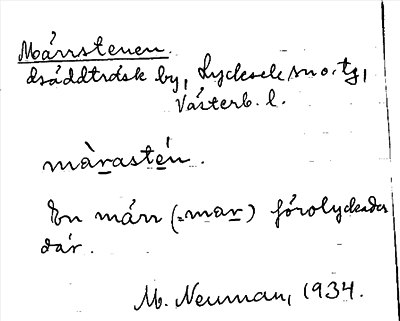 Märrstenen.
dsäddträsk by, Lycksele sn o. tg,
Västerb. l.
màrastén.
En märr (=mar) förolyckades
där.
M. Neuman, 1934.